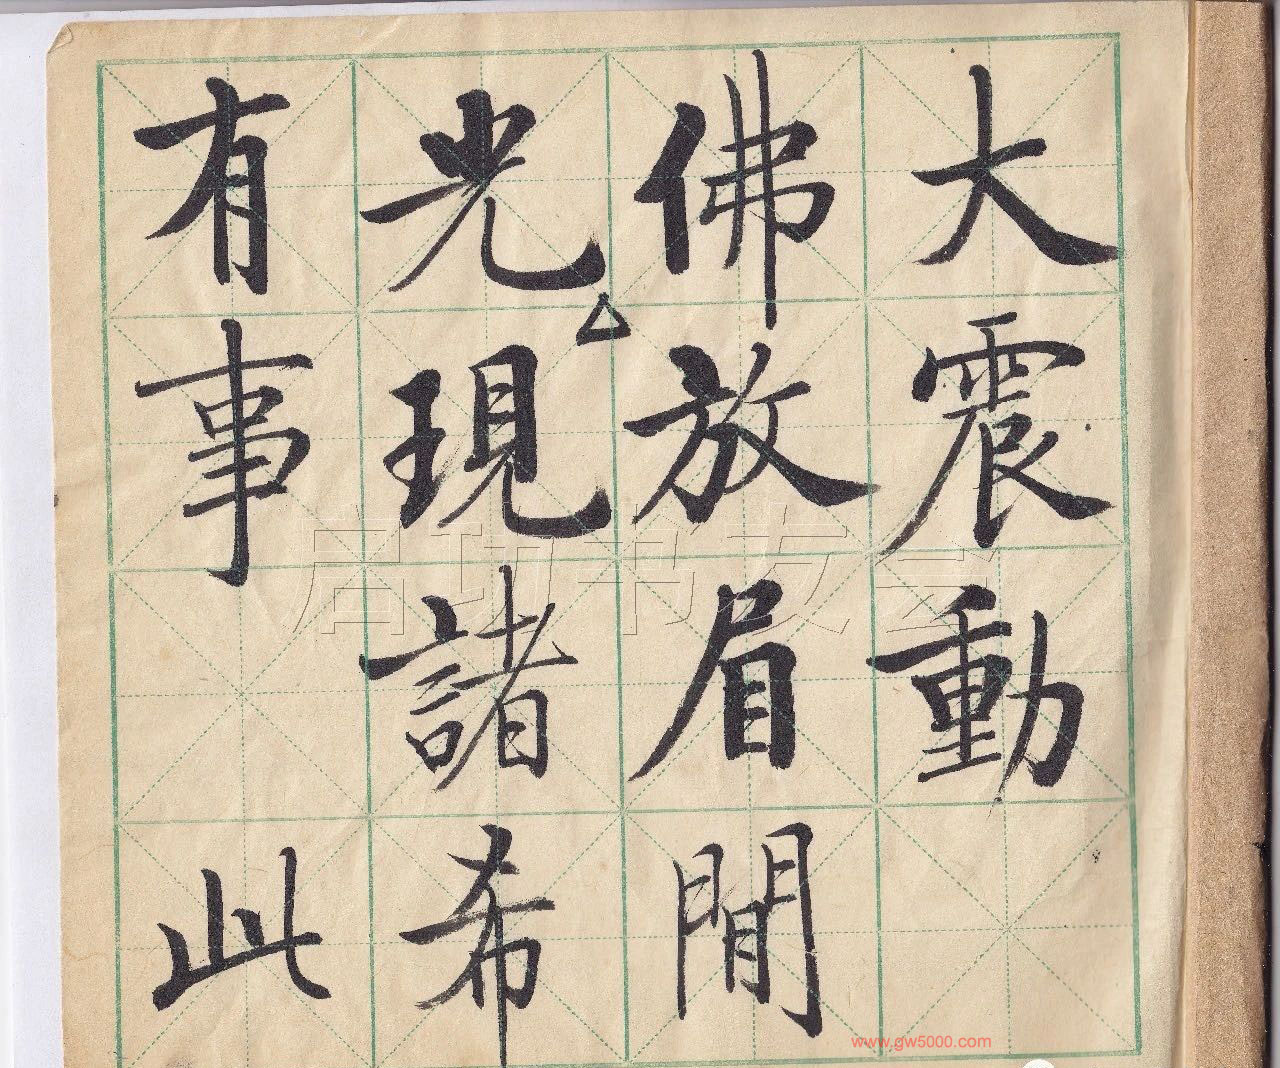 大震動
佛放眉間
光現諸希
有事 此
启功书友会
www.gw5000.com